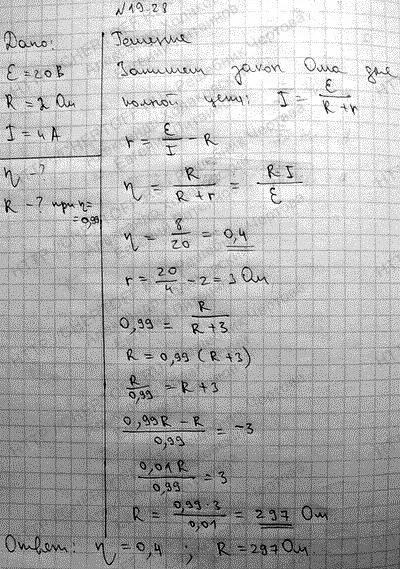 N19.28
Дано:
ℰ = 20 В
R = 2 Ом
I = 4 А
η - ?
R - ? при η =
= 0,99
Решение
Запишем закон Ома для
полной цепи: I = ℰ / (R + r)
r = ℰ / I - R
η = R / (R + r) = R·I / ℰ
η = 8 / 20 = 0,4
r = 20 / 4 - 2 = 3 Ом
0,99 = R / (R + 3)
R = 0,99 (R + 3)
R / 0,99 = R + 3
(0,99R - R) / 0,99 = -3
0,01R / 0,99 = 3
R = 0,99·3 / 0,01 = 297 Ом
Ответ: η = 0,4 ; R = 297 Ом.